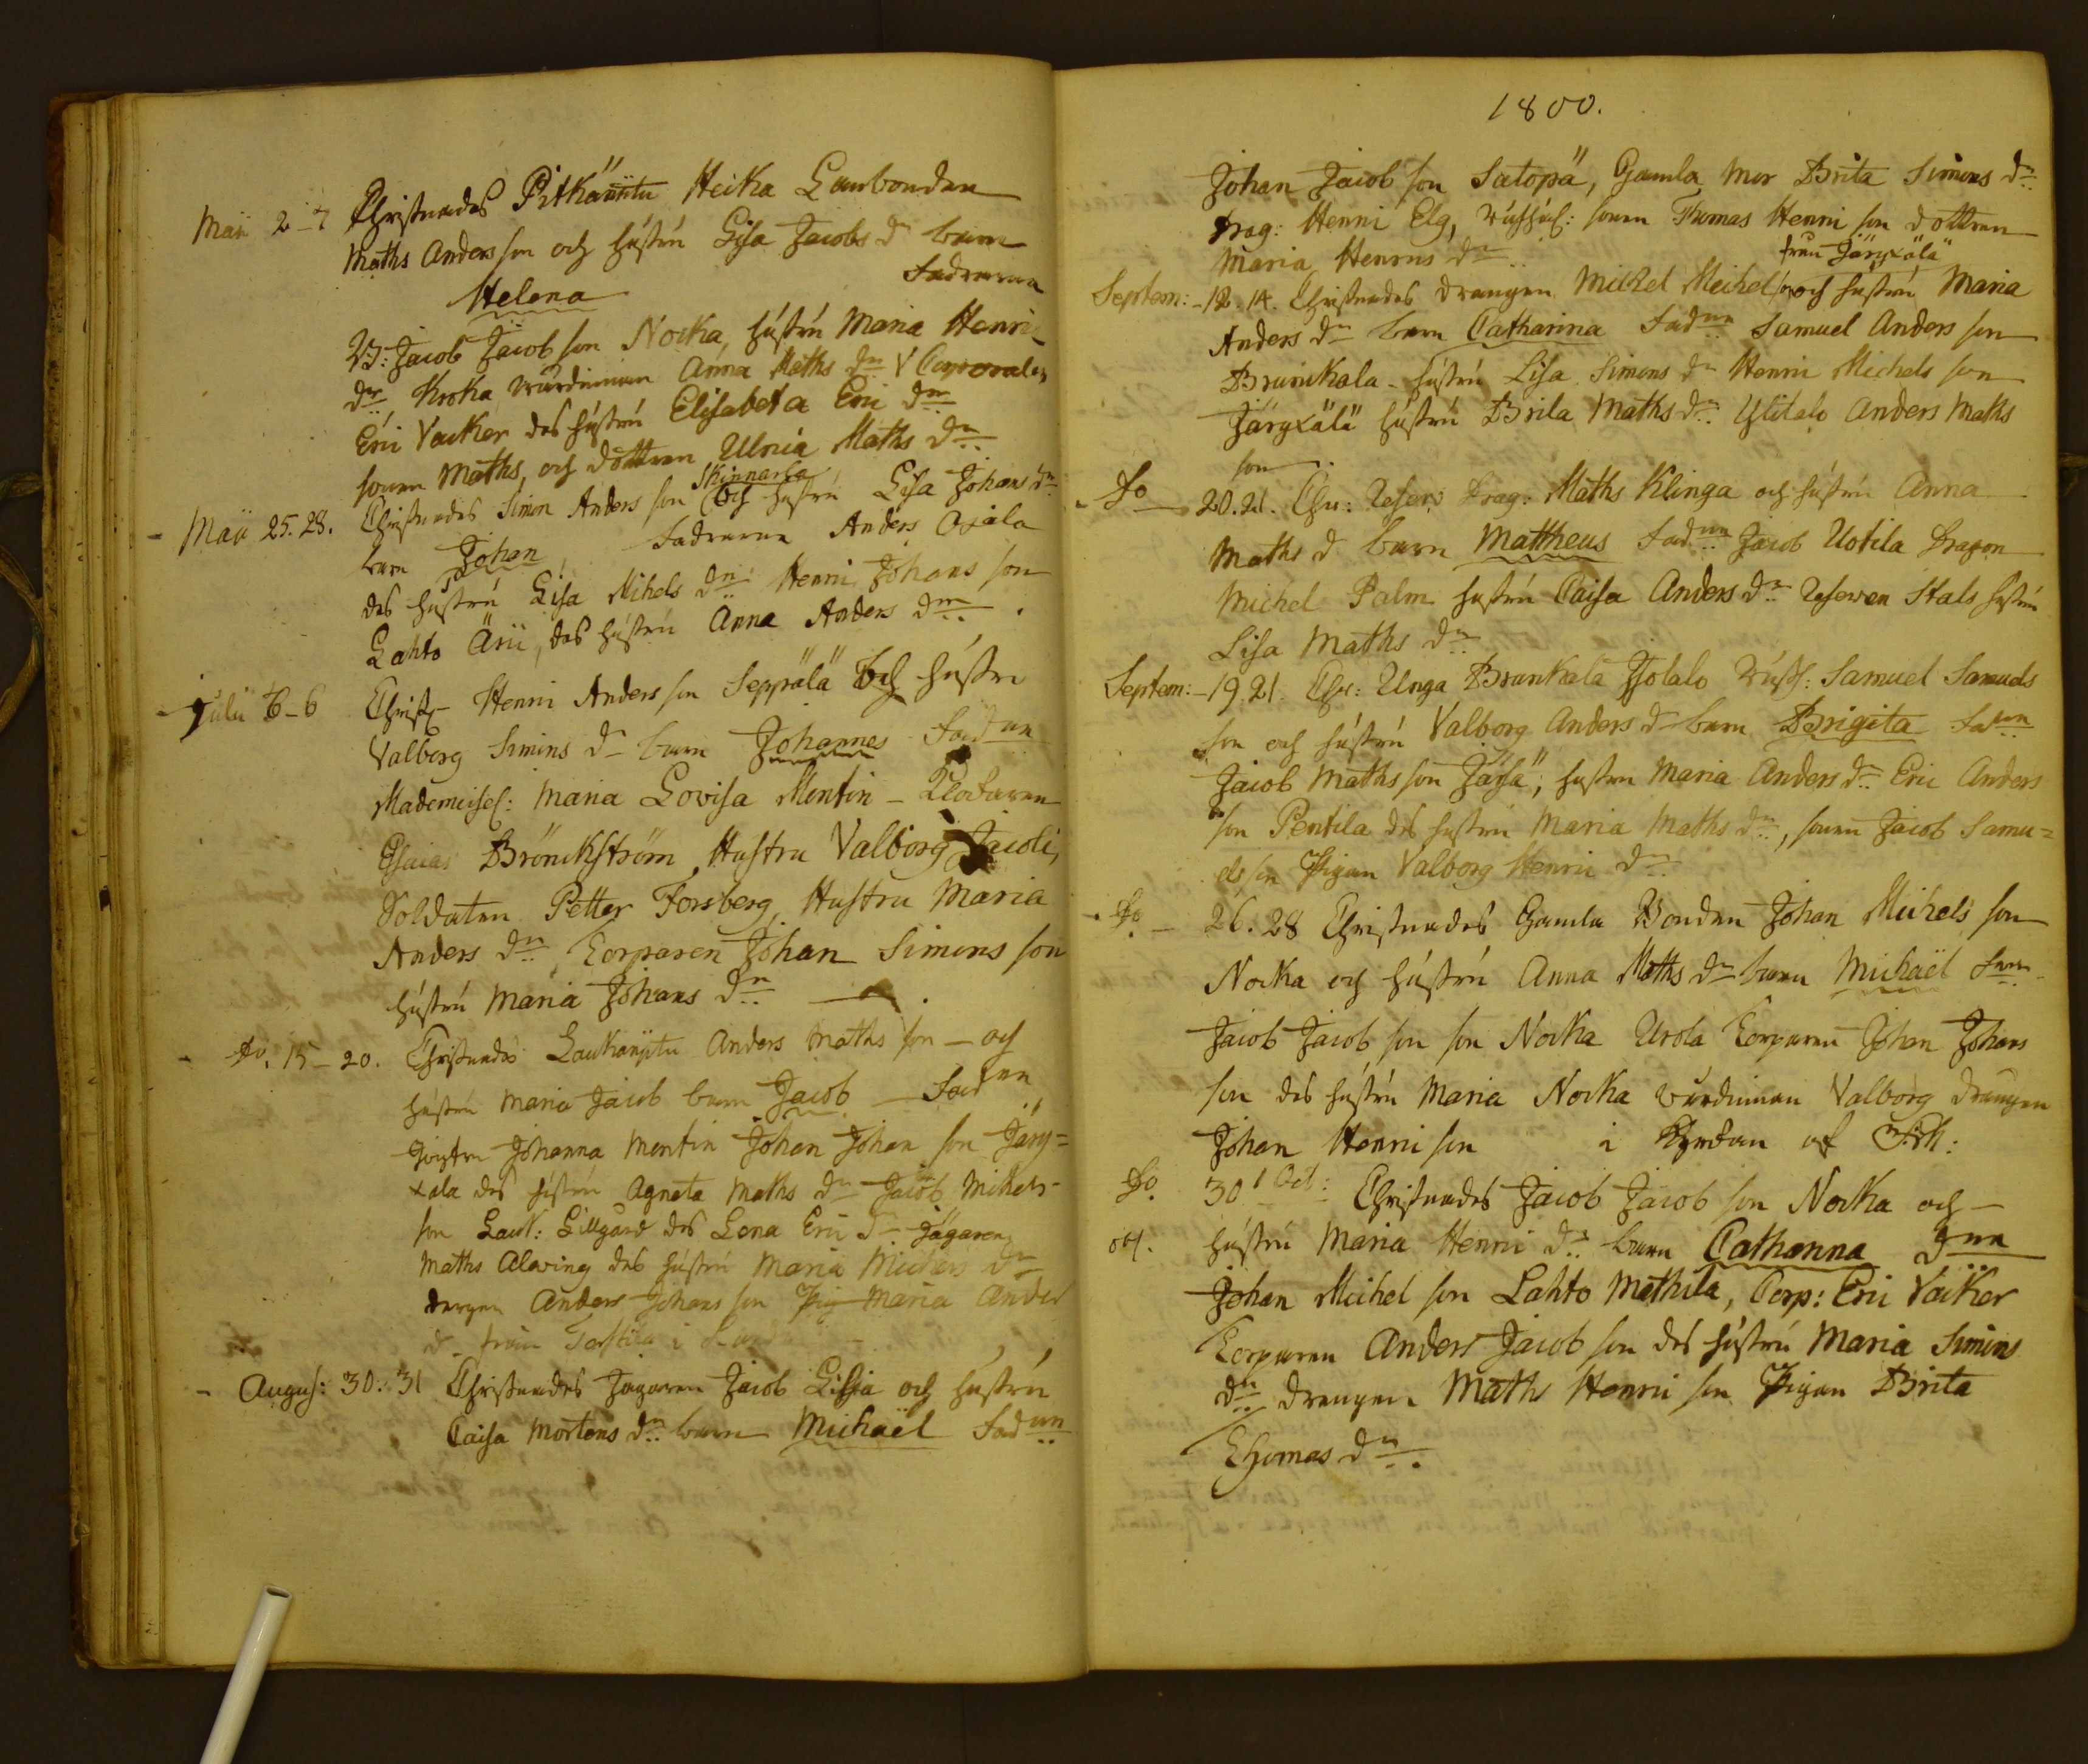 Maii 2-7 Christnades Pitkäniitu Heika Lanbonden
Maths Anders son och hustru Lisa Jacobs dr barn
Helena Faddrarna
B: Jacob Jacob son Nocka, hustru Maria Henric
dr Kroka Anna Maths dr V Corporalen
Eric Vacker des hustru Elisabeta Eric dr
sonen Maths, och dottren Ulrica Maths dr
Skinnarla
Maii 25.28. Christnades Simon Anders son och hustru Lisa Johans dr
barn Johan, Faddrarna Anders Ojala
des hustru Lisa Mihels dr Henric Johans son
Lahto Ärii, des hustru Anna Anders dr.
Julii 6-6 Christ Henric Anders son Seppälä och hustru
Valborg Simins dr barn Johannes Fadna
Mademoisel: Maria Lovisa Mentin - Klockaren
Esaias Brönckström, Hustru Valborg Jacobi,
Soldaten Petter Forsberg, Hustru Maria
Anders dr Torparen Johan Simons son
hustru Maria Johans dr
do. 15-20. Christnades Anders Maths son - och
hustru Maria Jacob barn Jacob Fadna
Johanna Mentin Johan Johan son Järy=
xala des hustru Agneta Maths dr Jacob Mihels-
son Lauk: Lillgård des Lena Eric dr Jägaren
Maths Alaving des hustru Maria Michels dr
drengen Anders Johans son Pig Maria Anders
d från i
Augus: 30.31 Christnades Jägaren Jacob Lilja och hustru
Caisa Mortens dr barn Michaël Fadna
1800.
Johan Jacob son Satopä, Gamla Mor Brita Simons dr
Drag: Henric Elg, sonen Thomas Henric son dottren
Maria Henrics dr
från Järyxälä
Septem:-12.14. Christnades drengen Michel Meichelson och hustru Maria
Anders dr barn Catharina Fadna Samuel Anders son
Brunkala - hustru Lisa Simons dr Henric Michels son
Järyxälä hustru Brita Maths dr Ylitalo Anders Maths
son
do 20.21. Chr: Reserv Drag: Maths Klinga och hustru Anna
Maths d barn Mattheus Fadna Jacob Uotila Dragon
Michel Palm hustru Caisa Anders dr Reserven Stals hustru
Lisa Maths dr
Septem:-19.21. Chr: Unga Brunkala Isotalo Samuel Samuels
son och hustru Valborg Anders d barn Brigita Fadna
Jacob Maths son Jässä; hustru Maria Anders dr Eric Anders
son Pentila des hustru Maria Maths dr, sonen Jacob Samu=
els son Pigan Valborg Henric dr
do - 26.28 Christnades Gamla Bonden Johan Michels son
Nocka och hustru Anna Maths dr barn Michaël
Jacob Jacob son son Nocka Urola Torparen Johan Johans
son des hustru Maria Nocka Valborg drengen
Johan Henric son i
do. 30 1 Oct: Christnades Jacob Jacob son Nocka och
hustru Maria Henric dr barn Catharina
Johan Michel son Lahto Mathila, Corp: Eric Vacker
Torparen Anders Jacob son des hustru Maria Simins
dr drengen Maths Henric son Pigan Brita
Thomas dr.